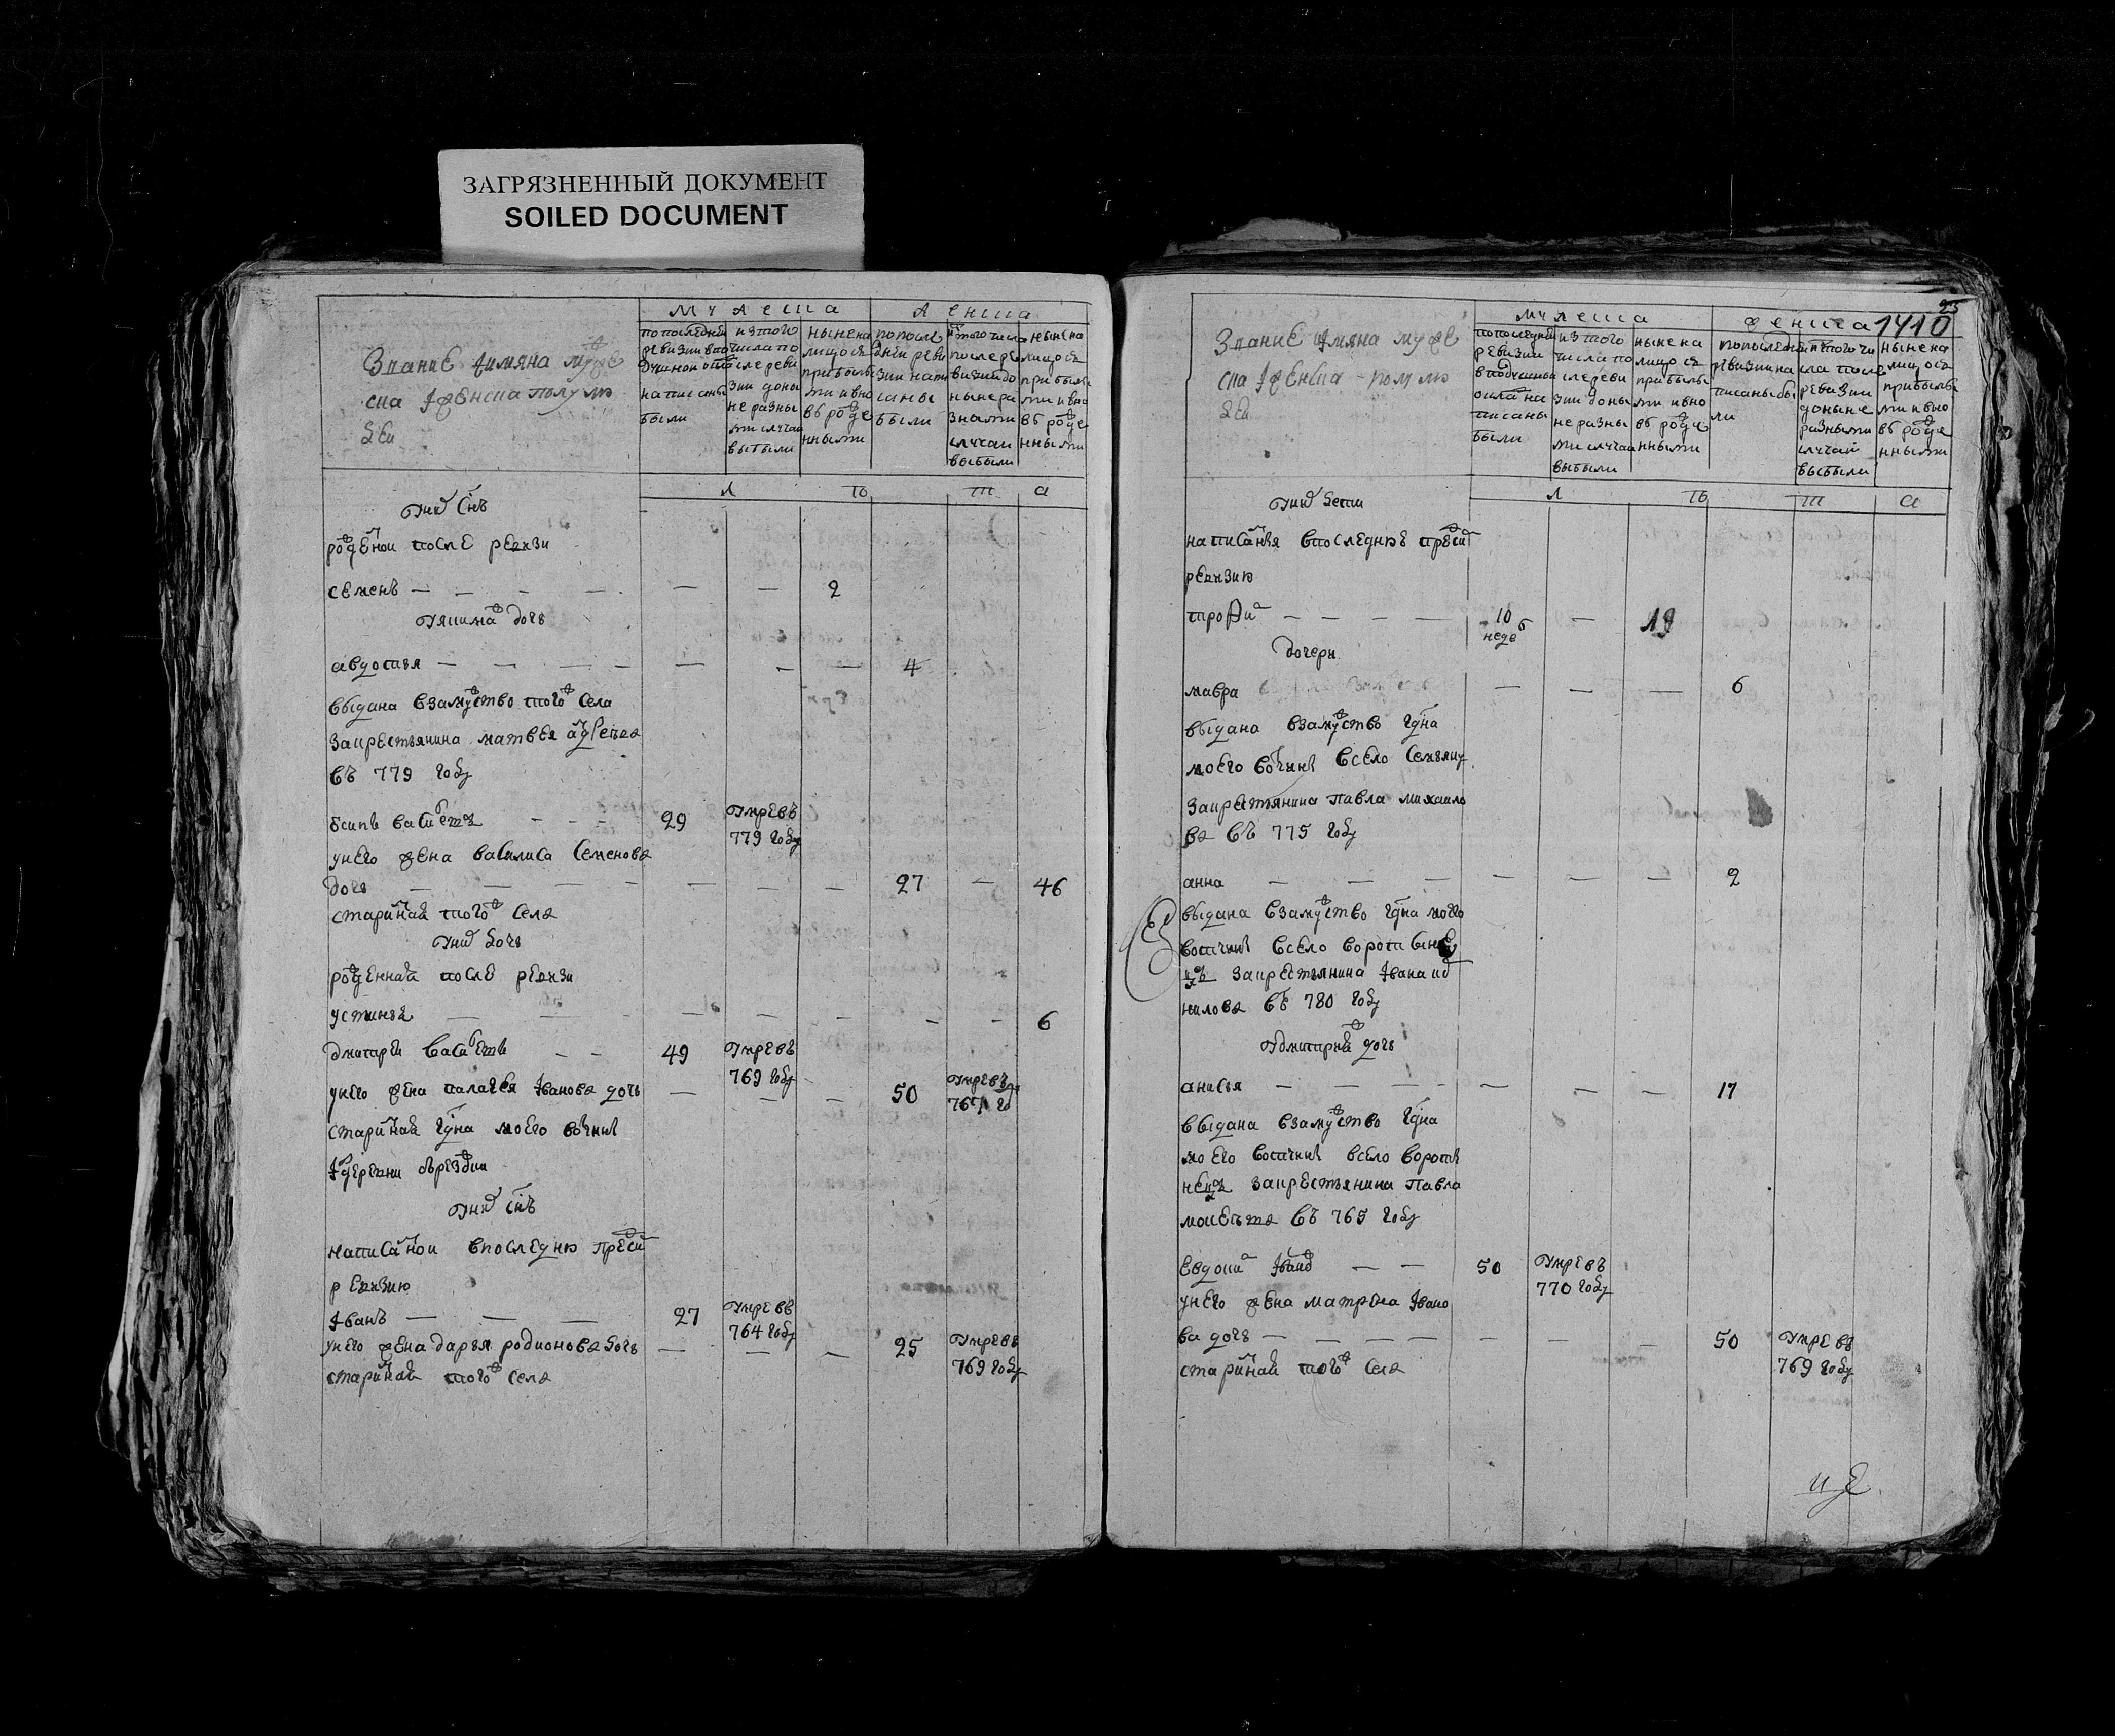 ЗАГРЯЗНЕННЫЙ ДОКУМЕНТ
SOILED DOCUMENT
Звание имяна муже
ска и женска полу лю
дей
мужеска
женска
по последней
ревизии в по
душной окла
написаны
были
из того
числа по
сле реви
зии до ны
не разны
ми случаи
выбыли
ныне на
лицо съ
прибылы
ми и вно
въ рожде
нными
по после
дней реви
зии напи
саны
были
ис того числа
после ре
визии до
ныне ра
зными
случаи
выбыли
ныне на
лицо съ
прибылы
ми и вно
въ рожде
нными
л ѣ т а
у них снъ
рожденной после ревизи
семенъ — — — — — — 2
дочь
авдотья — — — — — — — 4
выдана взамужство того ж села
за крестьянина матвея
въ 779 году
29 умре въ
779 году
у него жена василиса семенова
дочь — — — — — — — 27 — 46
старинная того ж села
у них дочь
рожденная после ревизи
устинья — — — — — — — — 6
дмитрей — — 49 умре въ
769 году
у него жена палагея иванова дочь — — — 50 умре въ
767 году
старинная
у них снъ
написанной в последню пред сим
ревизию
иванъ — — — 27 умре въ
764 году
у него жена дарья родионова дочь — — — 25 умре въ
769 году
старинная того ж села
25
1410
Звание имяна муже
ска и женска полу лю
дей
мужеска
женска
по последней
ревизии
в подушной
оклад на
писаны
были
из того
числа по
сле реви
зии до ны
не разны
ми случаи
выбыли
ныне на
лицо съ
прибылы
ми и вно
въ рожде
нными
по последней
ревизии на
писаны бы
ли
ис того чи
сла после
ревизии
до ныне
разными
случаи
выбыли
ныне на
лицо съ
прибылы
ми и вно
въ рожде
нными
л ѣ т а
у них дети
написанныя в последнюю пред сим
ревизию
трофим — — — — 10 недел — 19
дочери
мавра — — — 6
выдана взамужство
моего вотчину в село
за крестьянина павла михайло
ва въ 775 году
анна — — — — — — 2
выдана взамужство моею
вотчину в село
за крестьянина ивана
въ 780 году
у дмитрия ж дочь
анисья — — — — — — — 17
выдана взамужство
моего вотчину в село
за крестьянина павла
въ 765 году
евдоким иванов — — 50 умре въ
770 году
у него жена матрена ивано
ва дочь — — — — — — — 50 умре въ
769 году
старинная того ж села